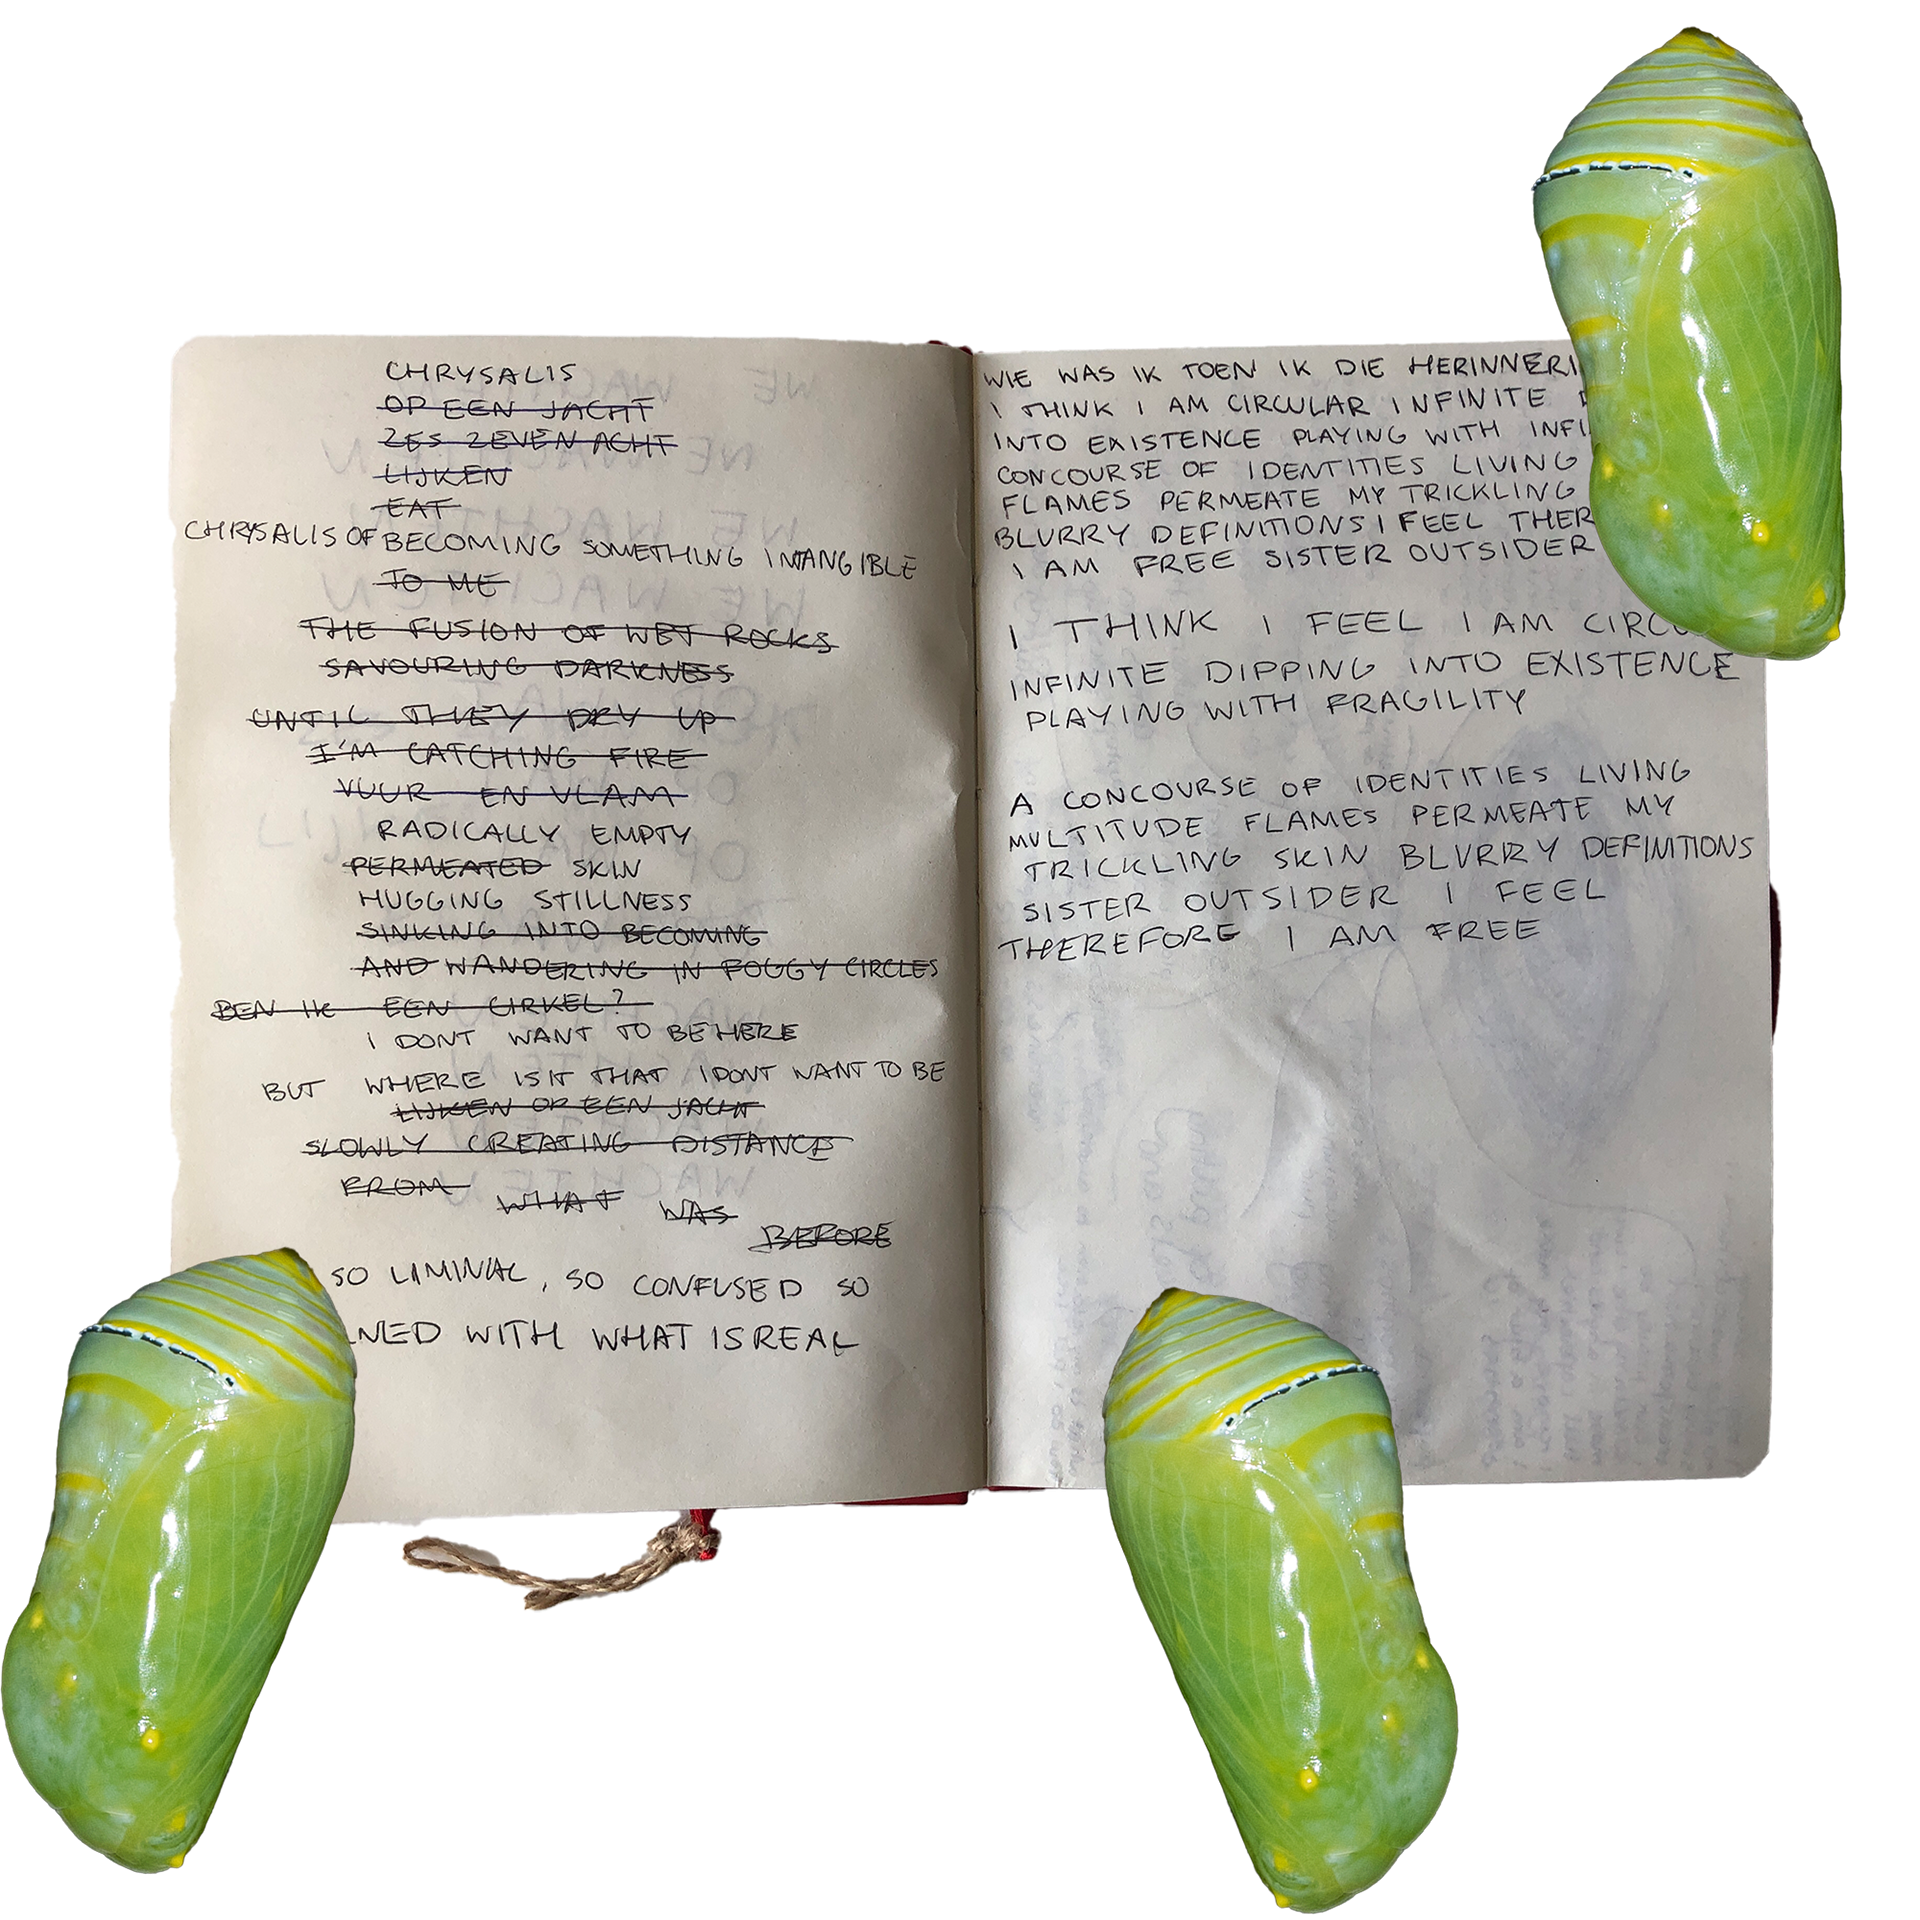 CHRYSALIS
OP EEN JACHT
ZES ZEVEN ACHT
LIJKEN
EAT
CHRYSALIS OF BECOMING SOMETHING INTANGIBLE
TO ME
THE FUSION OF WET ROCKS
SAVOURING DARKNESS
UNTIL THEY DRY UP
I'M CATCHING FIRE
VUUR EN VLAM
RADICALLY EMPTY
PERMEATED SKIN
HUGGING STILLNESS
SINKING INTO BECOMING
AND WANDERING IN FOGGY CIRCLES
BEN IK EEN CIRKEL?
I DONT WANT TO BE HERE
BUT WHERE IS IT THAT I DONT WANT TO BE
LIJKEN OP EEN JACHT
SLOWLY CREATING DISTANCE
FROM WHAT WAS
BEFORE
SO LIMINAL, SO CONFUSED SO
NED WITH WHAT IS REAL
WIE WAS IK TOEN IK DIE HERINNERI
I THINK I AM CIRCULAR INFINITE
INTO EXISTENCE PLAYING WITH INFI
CONCOURSE OF IDENTITIES LIVING
FLAMES PERMEATE MY TRICKLING
BLURRY DEFINITIONS I FEEL THER
I AM FREE SISTER OUTSIDER
I THINK I FEEL I AM CIRCU
INFINITE DIPPING INTO EXISTENCE
PLAYING WITH FRAGILITY
A CONCOURSE OF IDENTITIES LIVING
MULTITUDE FLAMES PERMEATE MY
TRICKLING SKIN BLURRY DEFINITIONS
SISTER OUTSIDER I FEEL
THEREFORE I AM FREE